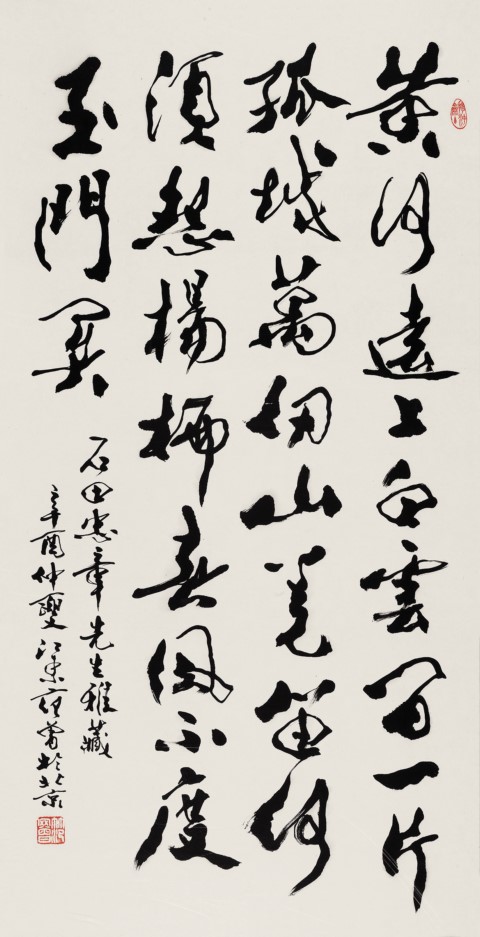 黄河遠上白雲間一片
孤城萬仞山羌笛何
須怨楊柳春風不度
玉門關
石田忠章先生雅藏
辛酉仲夏江東范曾於北京